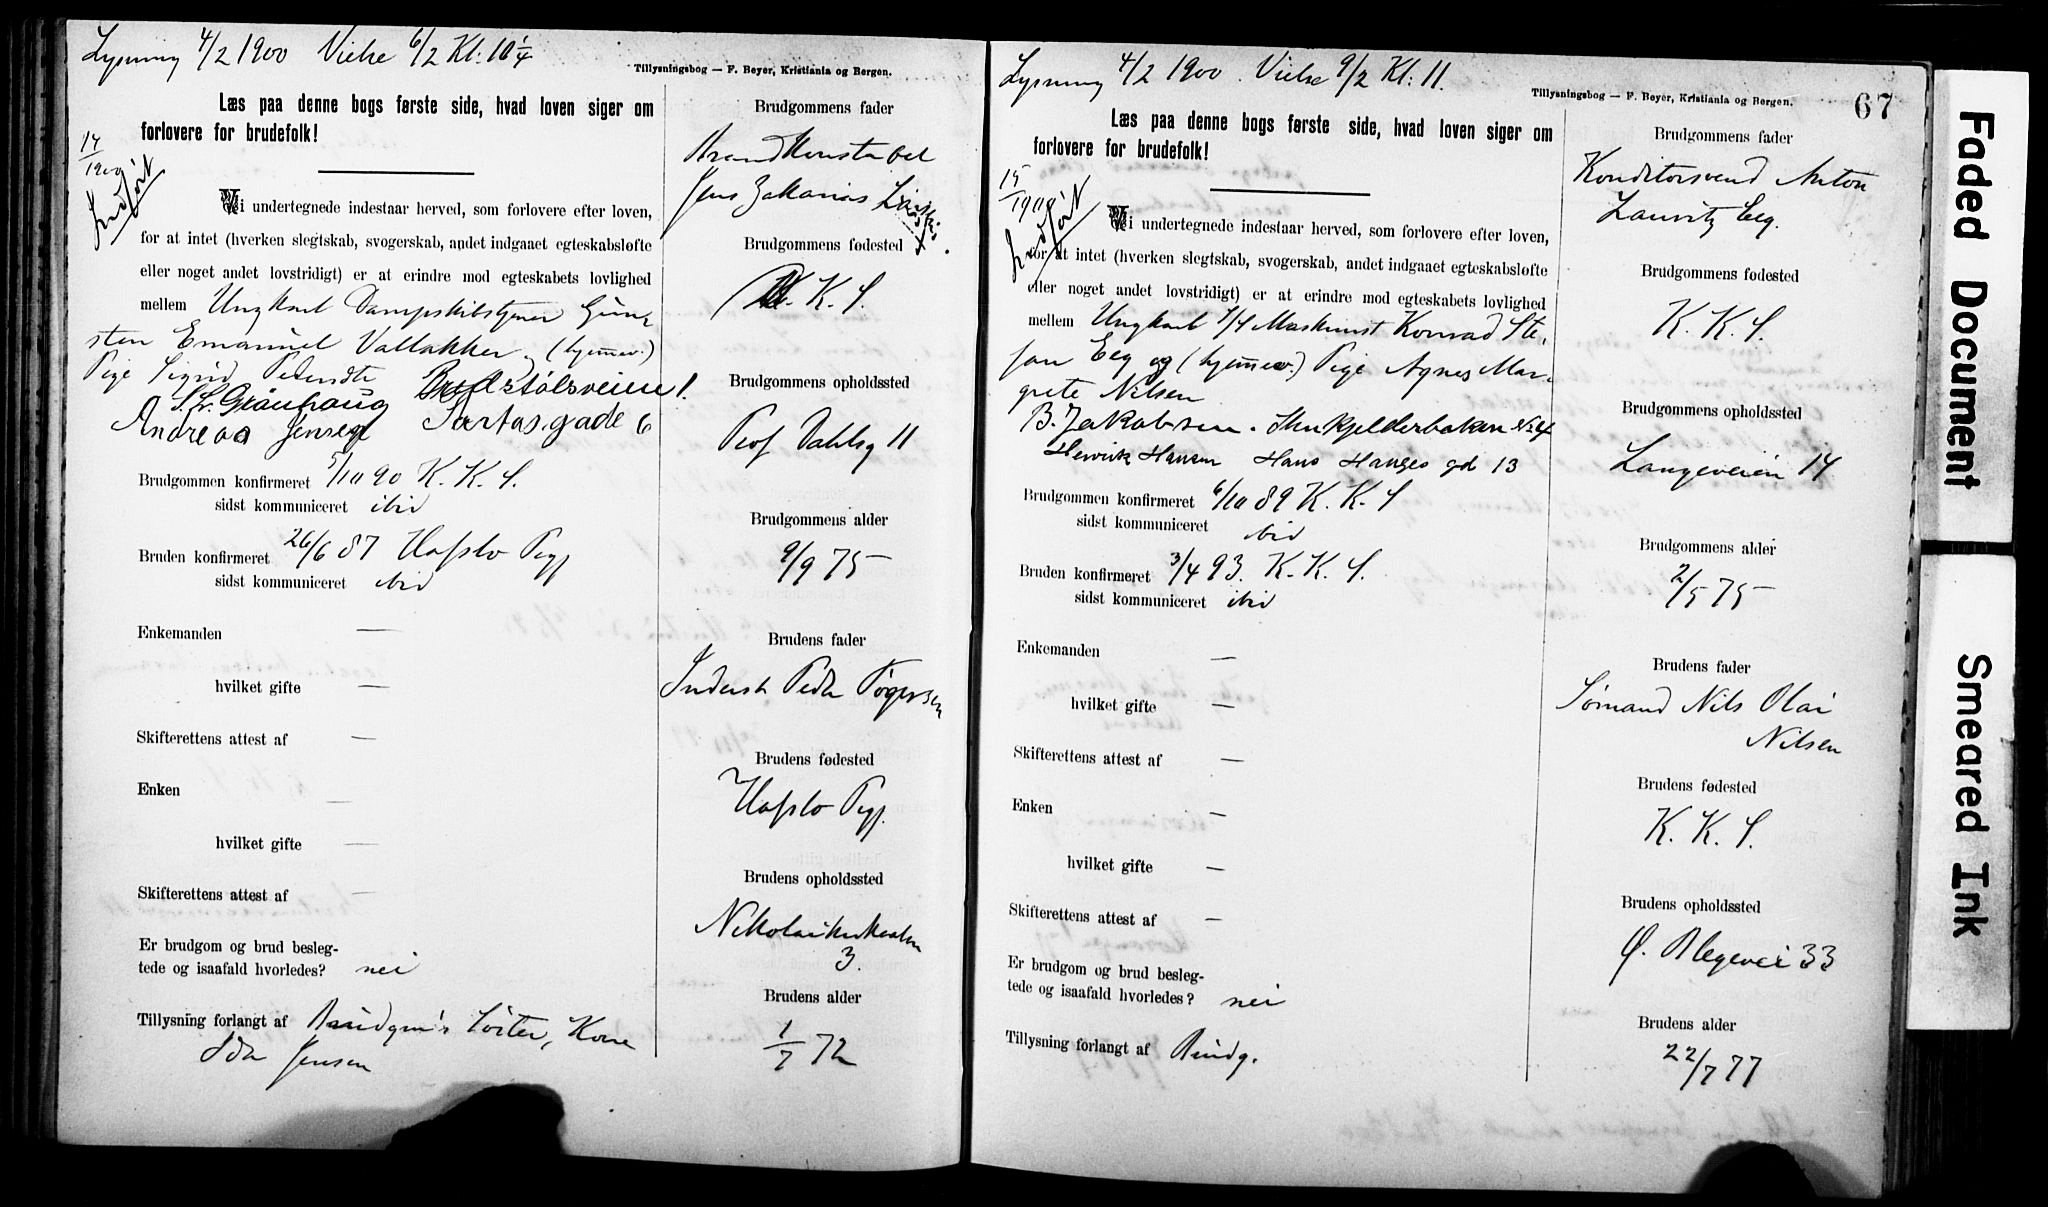 Lysning 4/2 1900 Vielse 6/2 Kl: 10 1/4
Tillysningsbog — F. Beyer, Kristiania og Bergen.
Læs paa denne bogs første side, hvad loven siger om
forlovere for brudefolk!
14/1900
Indført
Vi undertegnede indestaar herved, som forlovere efter loven,
for at intet (hverken slegtskab, svogerskab, andet indgaaet egteskabsløfte
eller noget andet lovstridigt) er at erindre mod egteskabets lovlighed
mellem Ungkarl Dampskibstjener Gun-
sten Emanuel Vallakker (hjemmev.)
Pige Sigrid Pedersdtr
S. L. Grauhaug Brødstølsveien 1.
Andreas Jensen Sartas.gade 6
Brudgommen konfirmeret 5/10 90 K. K. S.
sidst kommuniceret ibid
Bruden konfirmeret 26/6 87 Hafslo Pgj
sidst kommuniceret ibid
Enkemanden —
hvilket gifte —
Skifterettens attest af —
Enken —
hvilket gifte —
Skifterettens attest af —
Er brudgom og brud besleg-
tede og isaafald hvorledes? nei
Tillysning forlangt af Brudgm's Søster, Kone
Ida Jensen
Brudgommens fader
Brandkonstabel
Jens Zakarias
Brudgommens fødested
K. S.
Brudgommens opholdssted
Prof Dahlsg 11
Brudgommens alder
9/9 75
Brudens fader
Inderst Peder Tøgersen
Brudens fødested
Hafslo Pgj.
Brudens opholdssted
Nikolaikirkealm
3.
Brudens alder
1/7 72
Lysning 4/2 1900. Vielse 9/2 Kl: 11.
Tillysningsbog — F. Beyer, Kristiania og Bergen.
67
Læs paa denne bogs første side, hvad loven siger om
forlovere for brudefolk!
15/1900
Indført
Vi undertegnede indestaar herved, som forlovere efter loven,
for at intet (hverken slegtskab, svogerskab, andet indgaaet egteskabsløfte
eller noget andet lovstridigt) er at erindre mod egteskabets lovlighed
mellem Ungkarl Maskinist Konrad Ste-
fan Eeg og (hjemmev.) Pige Agnes Mar-
grete Nilsen
B. Jakobsen. No 4
Henrik Hansen Hans Hauges gd 13
Brudgommen konfirmeret 6/10 89 K. K. S
sidst kommuniceret ibid
Bruden konfirmeret 3/4 93. K. K. S.
sidst kommuniceret ibid
Enkemanden —
hvilket gifte —
Skifterettens attest af —
Enken —
hvilket gifte —
Skifterettens attest af —
Er brudgom og brud besleg-
tede og isaafald hvorledes? nei
Tillysning forlangt af Brudg.
Brudgommens fader
Konditorsvend Anton
Lauritz Eeg.
Brudgommens fødested
K. K. S.
Brudgommens opholdssted
Langeveien 14
Brudgommens alder
2/5 75
Brudens fader
Sømand Nils Olai
Nilsen
Brudens fødested
K. K. S.
Brudens opholdssted
Ø. Blegevei 33
Brudens alder
22/7 77
Faded Document
Smeared Ink